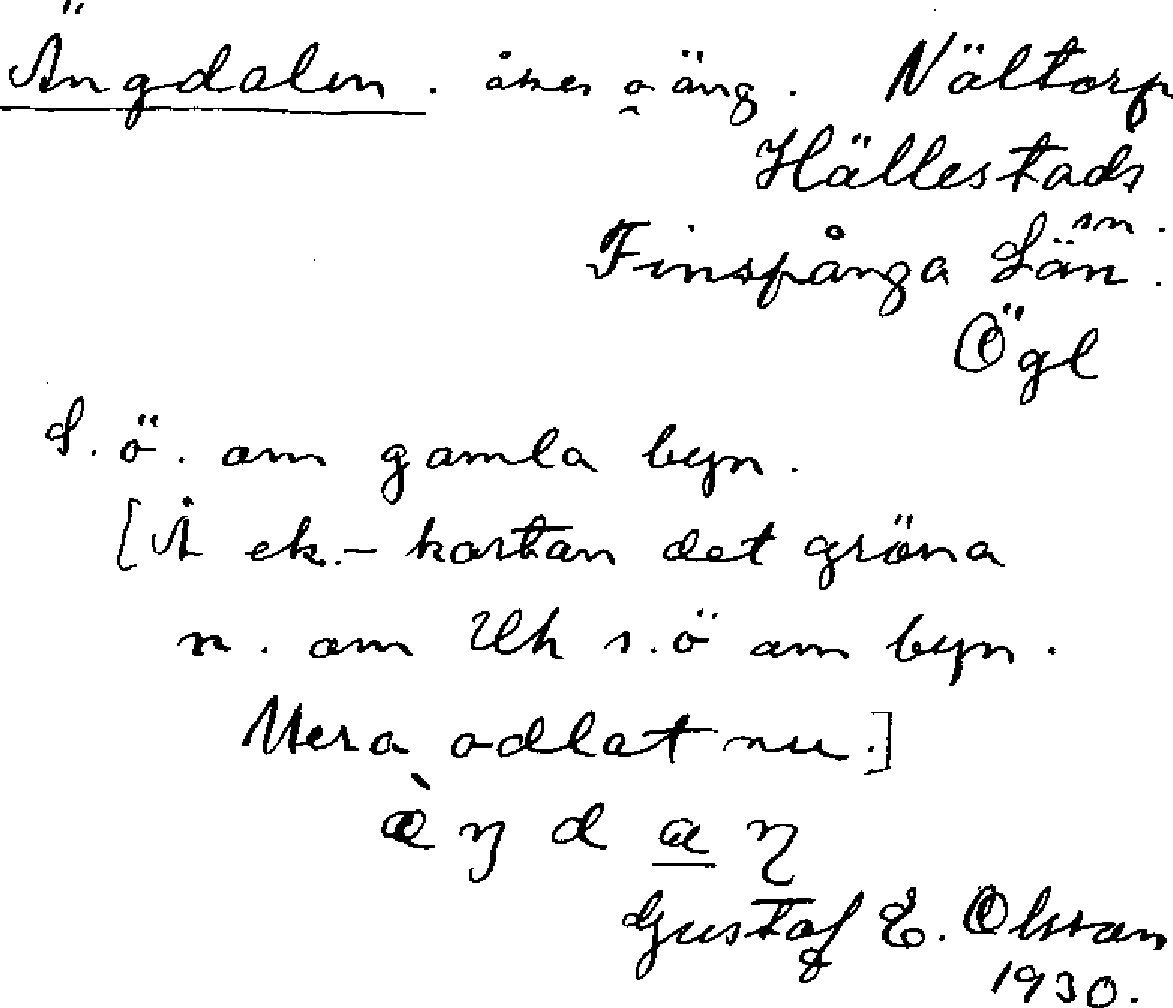 Ängdalen. åker o äng. Nältorp
Hällestads
sn.
Finspånga Län.
Ögl
S. ö. om gamla byn.
[Å ek.- kartan det gröna
n. om Uh s.ö om byn.
Mera odlat nu.]
æ̀ŋdaɳ
Gustaf E. Olsson
1930.